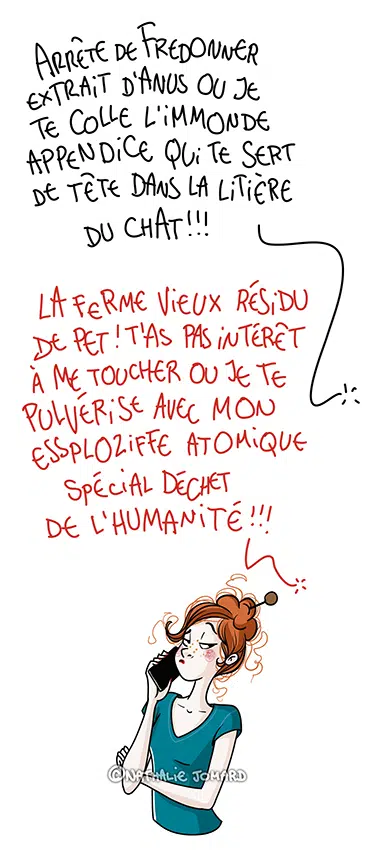 ARRÊTE DE FREDONNER
EXTRAIT D'ANUS OU JE
TE COLLE L'IMMONDE
APPENDICE QUI TE SERT
DE TÊTE DANS LA LITIÈRE
DU CHAT!!!
LA FERME VIEUX RÉSIDU
DE PET! T'AS PAS INTÉRÊT
À ME TOUCHER OU JE TE
PULVÉRISE AVEC MON
ESSPLOZIFFE ATOMIQUE
SPÉCIAL DÉCHET
DE L'HUMANITÉ!!!
©NATHALIE JOMARD